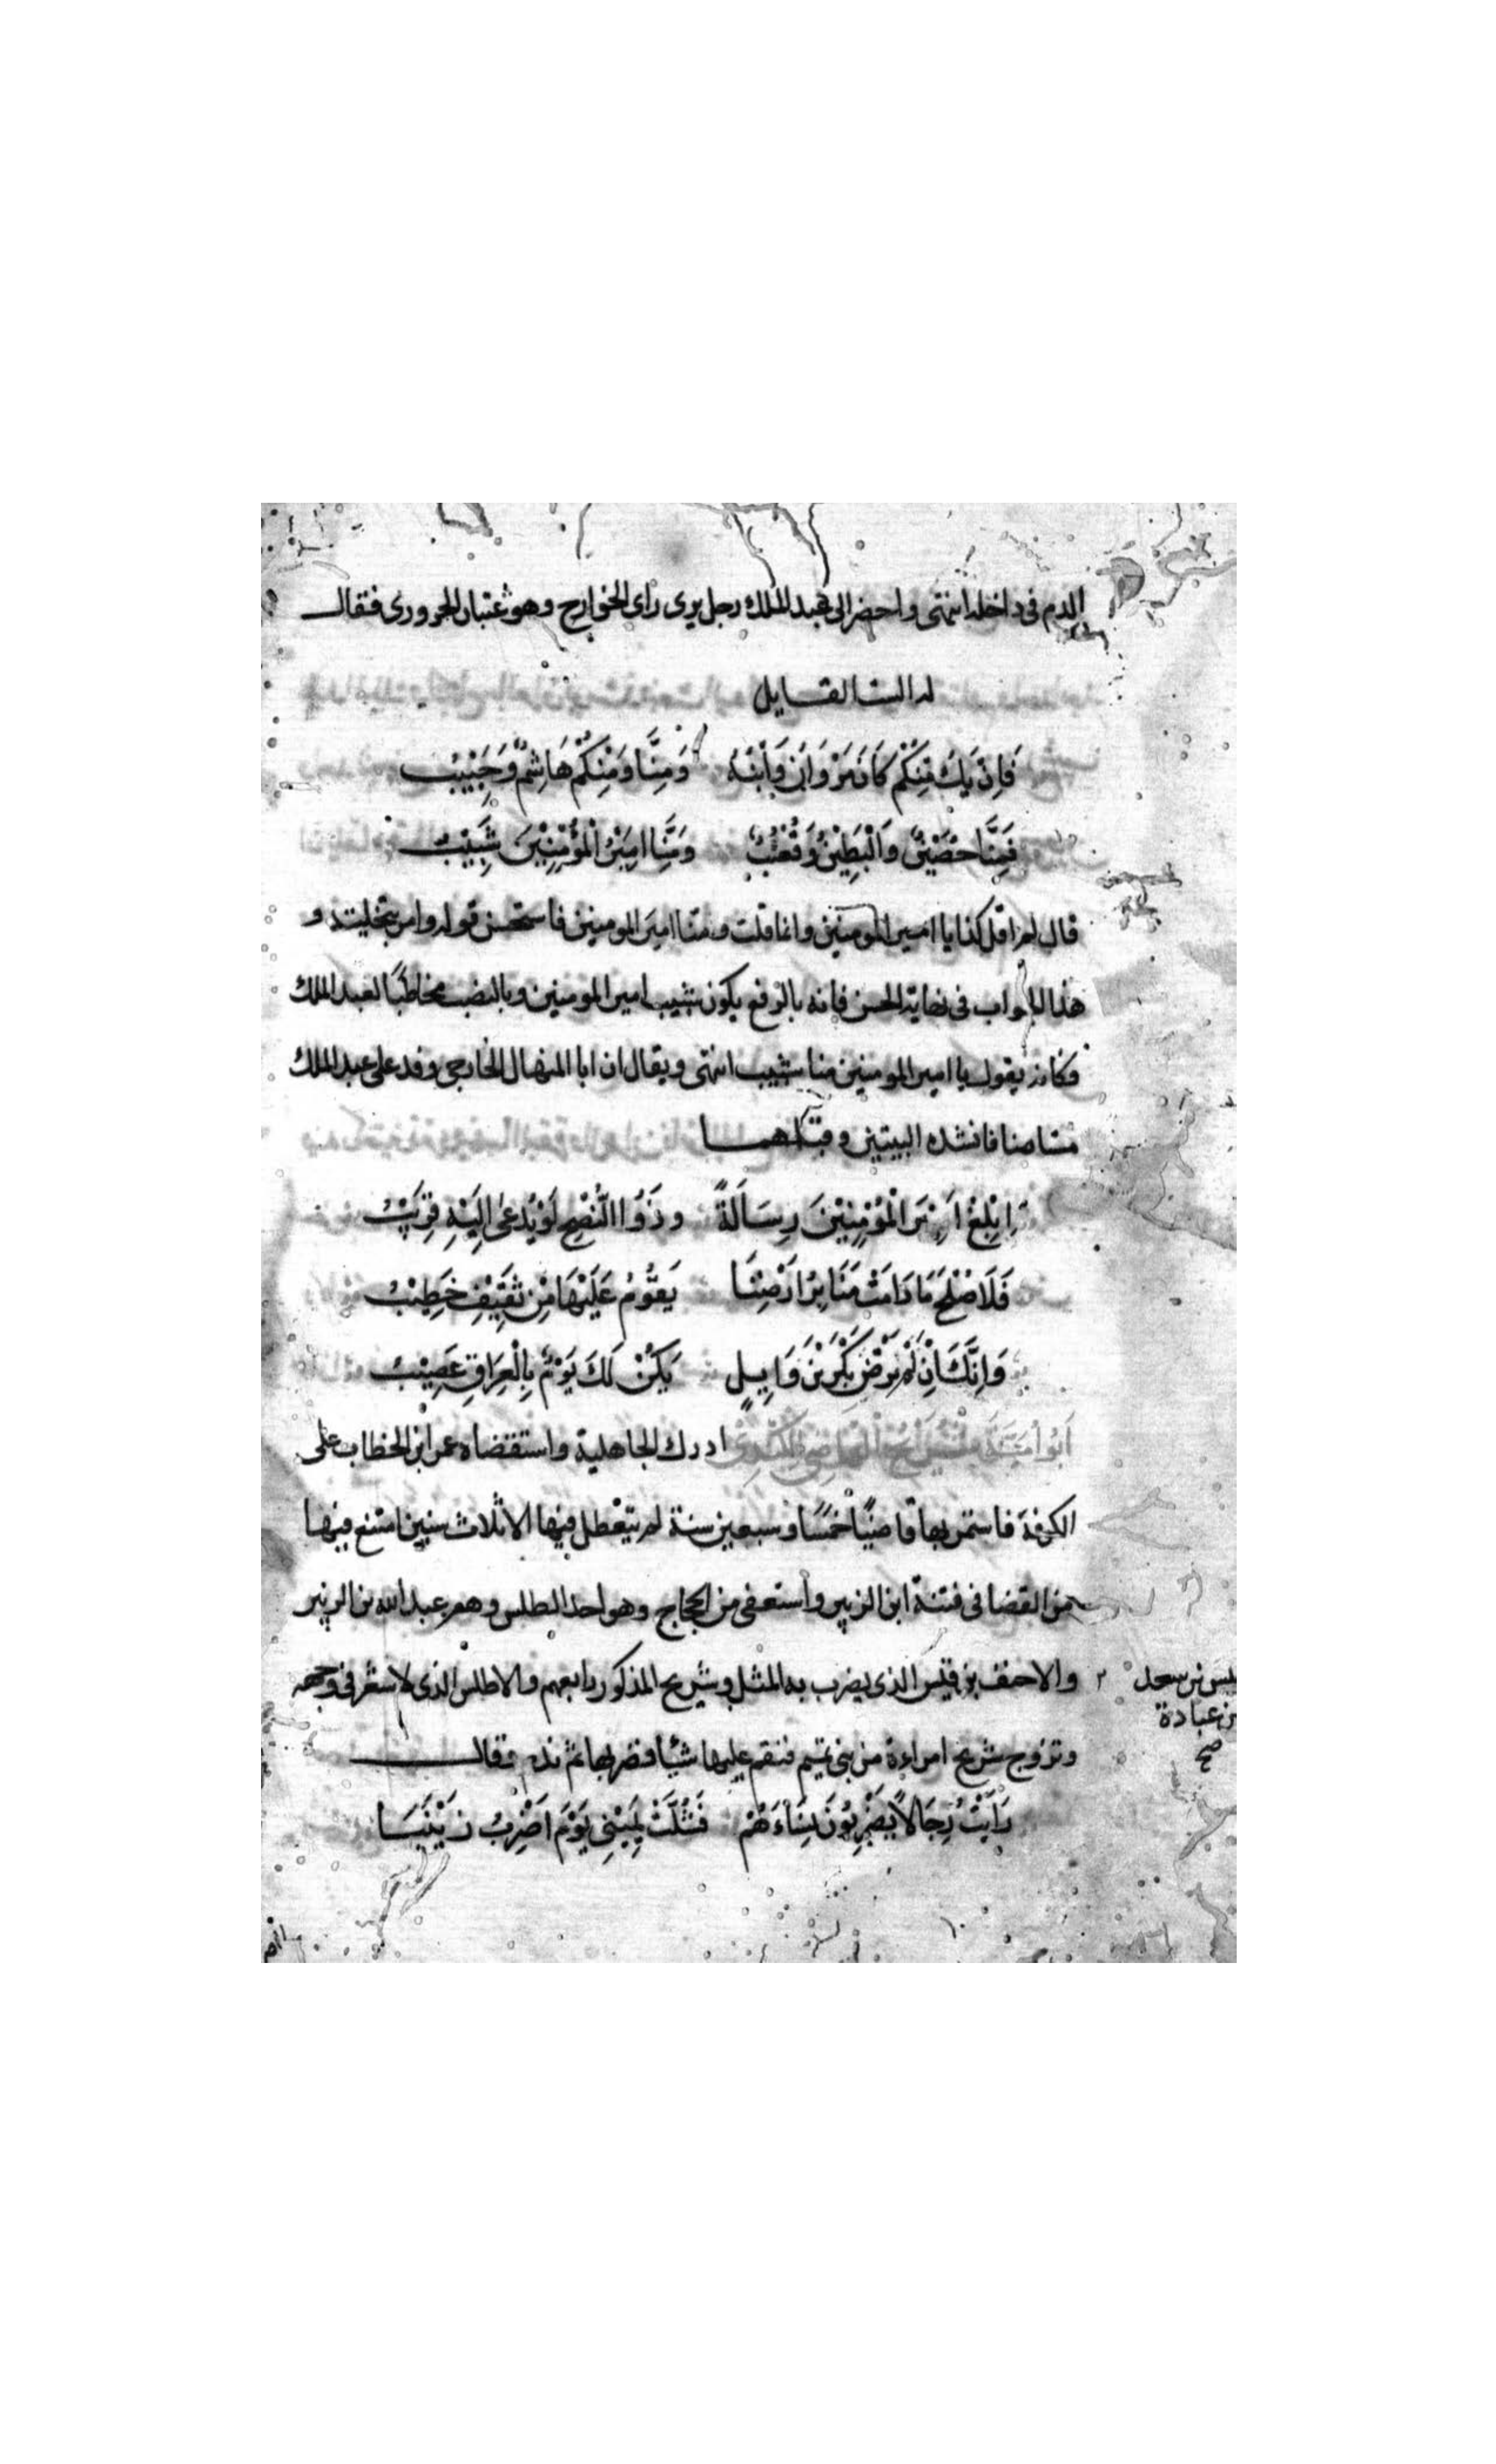 الدم في داخله انتهى واحضر الى عبد الملك رجل يرى راى الخوارج وهو عتبان الحرورى فقال
له الست القايل
فَاِنْ يَكُ مِنْكُمْ كَانَ مَرْوَانُ وَابْنُهُ وَمِنَّا وَمِنْكُمْ هَاشِمٌ وَحَبِيْبُ
فَمِنَّا حُصَيْنٌ وَالْبَطِيْنُ وَقُعْنُبٌ وَمِنَّا اَمِيْرُ الْمُؤْمِنِيْنَ شَبِيْبُ
قال لم اقل كذا يا امير المومنين وانما قلت ومنا اميرَ المومنين فاستحسن قوله وامر بتخليته و
هذا الجواب في نهاية الحسن فانه بالرفع يكون شبيب امير المومنين وبالنصب مخاطبًا لعبد الملك
فكانه يقول يا امير المومنين منا شبيب انتهى ويقال ان ابا المنهال الخارجى وفد على عبد الملك
فانشده البيتين وقبلهما
اَبْلِغْ اَمِيْرَ الْمُؤْمِنِيْنَ رِسَالَةً وذُو النُّصْحِ لَوْ يُدْعٰى اِلَيْهِ قَرِيْبُ
فَلَا صُلْحَ مَا دَامَتْ مَنَابِرُ اَرْضِنَا يَقُوْمُ عَلَيْهَا مِنْ ثَقِيْفٍ خَطِيْبُ
وَاِنَّكَ اِنْ لَمْ تَرْضَ بَكْرَ بْنَ وَايِلٍ يَكُنْ لَكَ يَوْمٌ بِالْعِرَاقِ عَصِيْبُ
اَبُو اُمَيَّةَ شُرَيْحٌ الْقَاضِي الْكِنْدِىّ ادرك الجاهلية واستقضاه عمر ابن الخطاب على
الكوفة فاستمر بها قاضيًا خمسًا وسبعين سنة لم يتعطل فيها الا ثلاث سنين امتنع فيها
من القضا في فتنة ابن الزبير واستعفى من الحجاج وهو احد الطلس وهم عبد الله بن الزبير
والاحنف بن قيس الذى يضرب به المثل وشريح المذكور رابعهم والاطلس الذى لا شعر في وجهه
قيس بن سعد
بن عبادة
صح
وتزوج شريح امراءة من بنى تميم فنقم عليها شيًا فضربها ثم ندم وقال
رَاَيْتُ رِجَالًا يَضْرِبُوْنَ نِسَاءَهُمْ فَشُلَّتْ يَمِيْنِى يَوْمَ اَضْرِبُ زَيْنَبَا